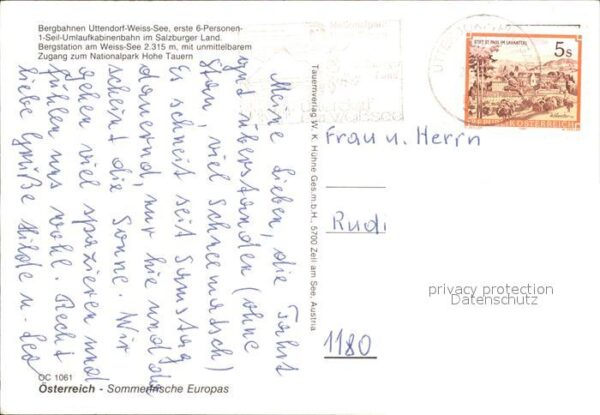 Bergbahnen Uttendorf-Weiss-See, erste 6-Personen-
1-Seil-Umlaufkabinenbahn im Salzburger Land.
Bergstation am Weiss-See 2.315 m, mit unmittelbarem
Zugang zum Nationalpark Hohe Tauern
Meine Lieben, die Fahrt
gut überstanden (ohne
Stau, viel Schneematsch)
Es schneit seit Samstag
dauernd, nur hie und da
scheint die Sonne. Wir
gehen viel spazieren und
fühlen uns wohl. Recht
liebe Grüße Hilde u. Leo
OC 1061
Österreich - Sommerfrische Europas
Tauernverlag W. K. Hühne Ges.m.b.H., 5700 Zell am See, Austria
STIFT ST. PAUL IM LAVANTTAL
5 s
REPUBLIK ÖSTERREICH
Frau u. Herrn
Rudi
1180
privacy protection
Datenschutz